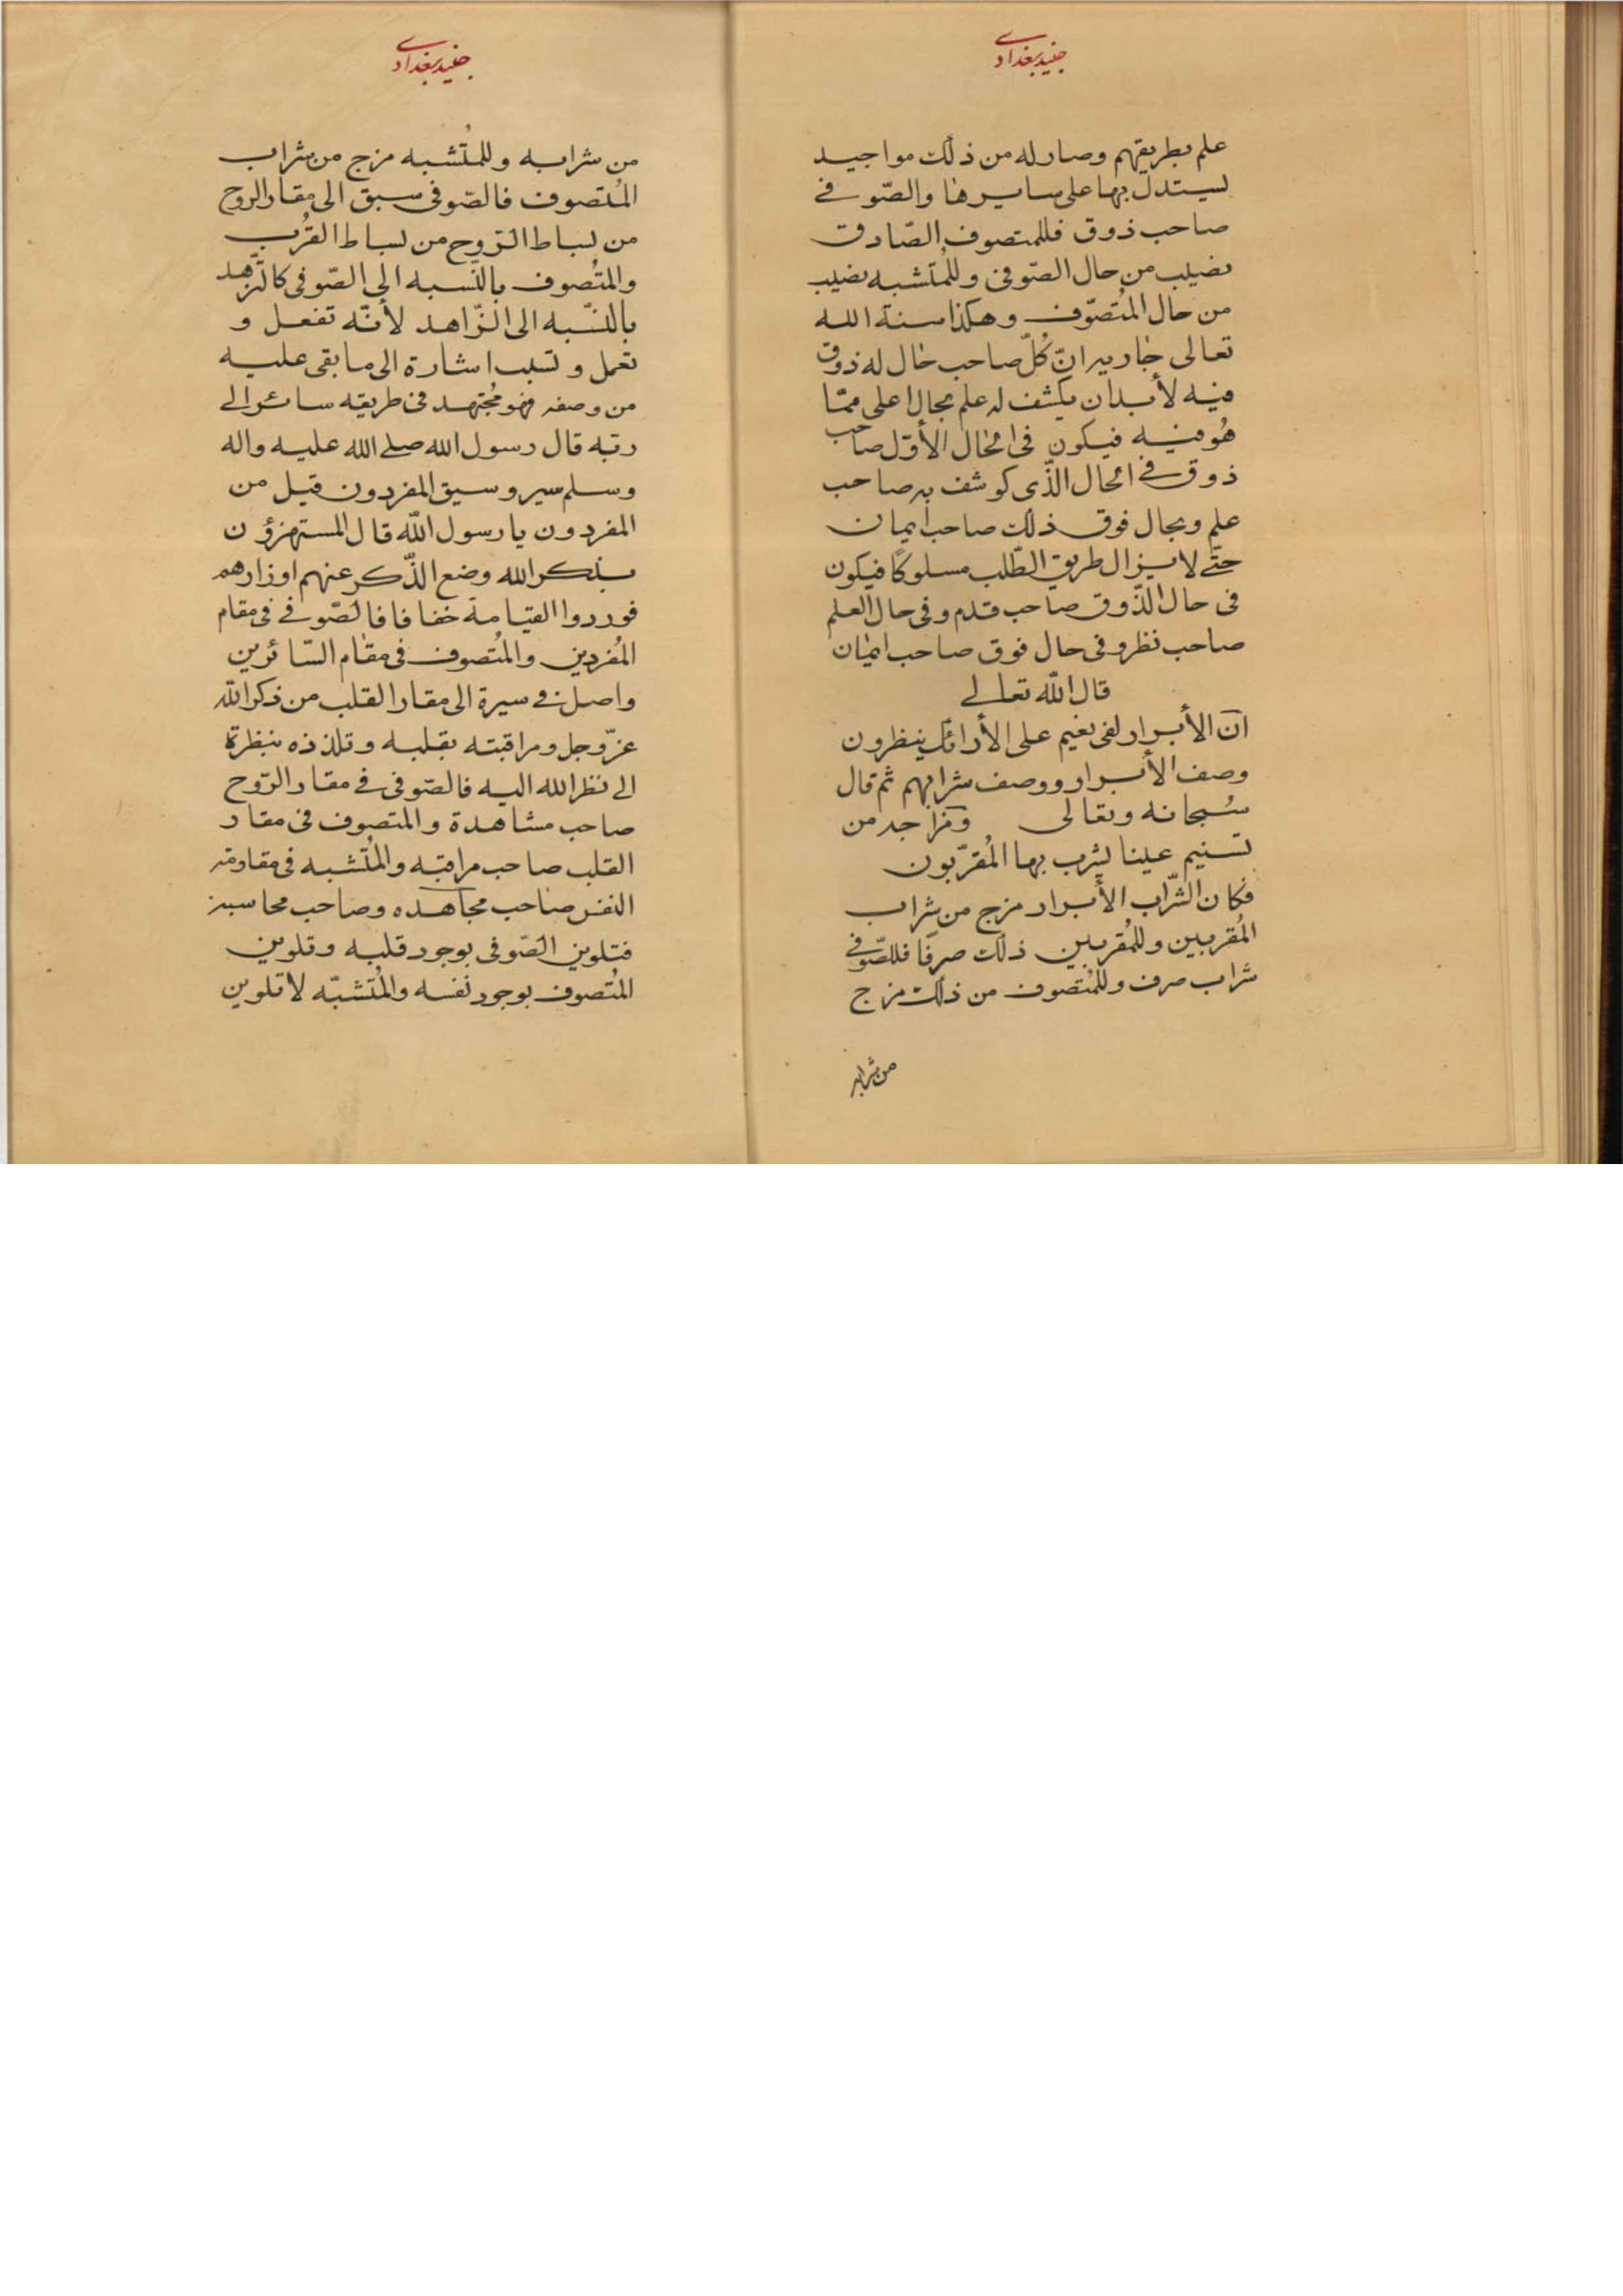 جنید بغدادی
علم بطریقهم وصار له من ذلک مواجید
یستدل بها علی سایرها والصّوفے
صاحب ذوق فللمتصوف الصّادق
نصیب من حال الصّوفی وللمُتشبه نصیب
من حال المُتصوّف وهکذا سنة الله
تعالی جاریر انّ کُلّ صاحب حال له ذوق
فیه لأبدان یکشف له علم بحال اعلی ممّا
هُو فیه فیکون فی الحال الأوّل صاحب
ذوق فے الحال الذّی کوشف به صاحب
علم وبحال فوق ذلک صاحب ایمان
حتّے لا یزال طریق الطّلب مسلوکًا فیکون
فی حال الذّوق صاحب قدم وفی حال العلم
صاحب نظر وفی حال فوق صاحب ایمان
قال الله تعالے
انّ الأبرار لفی نعیم علی الأرائک ینظرون
وصف الأبرار ووصف شرابهم ثم قال
سُبحانه وتعالی ومزاجه من
تسنیم عینا یشرب بها المُقرّبون
فکان الشّراب الأبرار مزج من شراب
المُقربین وللمُقربین ذلک صرفًا فللصّوفے
شراب صرف وللمُتصوف من ذلک مزج
من شرابه
جنید بغدادی
من شرابه وللمُتشبه مزج من شراب
المُتصوف فالصّوفی سبق الی مقار الروح
من بساط الرّوح من بساط القُرب
والمُتصوف بالنّسبه الی الصّوفی کالتّزهد
بالنّسبه الی الزّاهد لأنّه تفعل و
تعمل و تسبب اشارة الی ما بقی علیه
من وصفه فهو مُجتهد فی طریقه سائر الے
ربّه قال رسول الله صلے الله علیه واله
وسلم سیروسیق المفردون قیل من
المفردون یا رسول الله قال المستهزؤن
بذکر الله وضع الذّکر عنهم اوزارهم
فوردوا القیامة خفافا فالصّوفے فی مقام
المُفردین والمُتصوف فی مقام السّائرین
واصل فی سیرة الی مقار القلب من ذکر الله
عزّوجل ومراقبته بقلبه وتلذذه بنظرة
الے نظر الله الیه فالصّوفی فے مقار الرّوح
صاحب مشاهدة والمتصوف فی مقار
القلب صاحب مراقبه والمُتّشبه فی مقاومه
النفس صاحب مجاهده وصاحب محاسبه
فتلوین الصّوفی بوجود قلبه وتلوین
المُتصوف بوجود نفسه والمُتشبّه لا تلوین